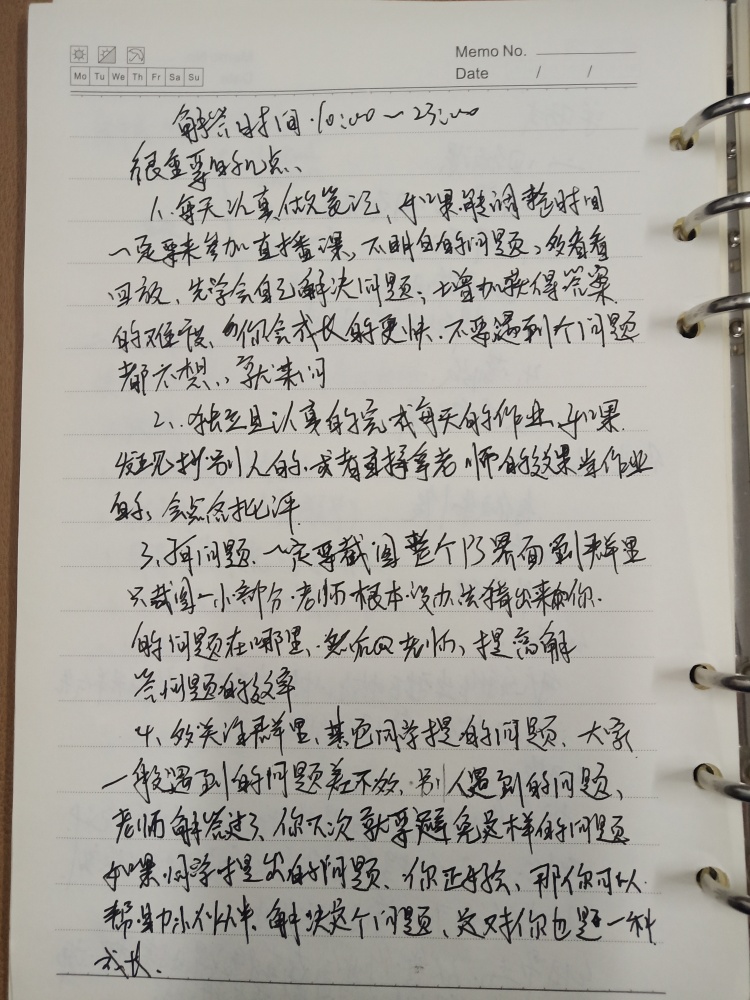 Memo No.
Mo Tu We Th Fr Sa Su
Date / /
解答时间·10:00～23:00
很重要的几点、
1、每天认真做笔记，如果能调整时间
一定要来参加直播课，不明白的问题，多看看
回放、先学会自己解决问题；增加获得答案
的难度、你会成长的更快．不要遇到个问题
都不想、就来问
2、独立且认真的完成每天的作业、如果
发现抄别人的．或者直接拿老师的效果当作业
的，会点名批评．
3、问问题、一定要截图整个PS界面到群里
只截图一小部分．老师根本没办法猜出来你
的问题在哪里、然后@老师，提高解
答问题的效率
4、多关注群里、其它同学提的问题、大家
一般遇到的问题差不多，别人遇到的问题、
老师解答过了、你下次就要避免这样的问题
如果同学提出的问题、你正好会、那你可以
帮助小伙伴、解决这个问题、这对你也是一种
成长．